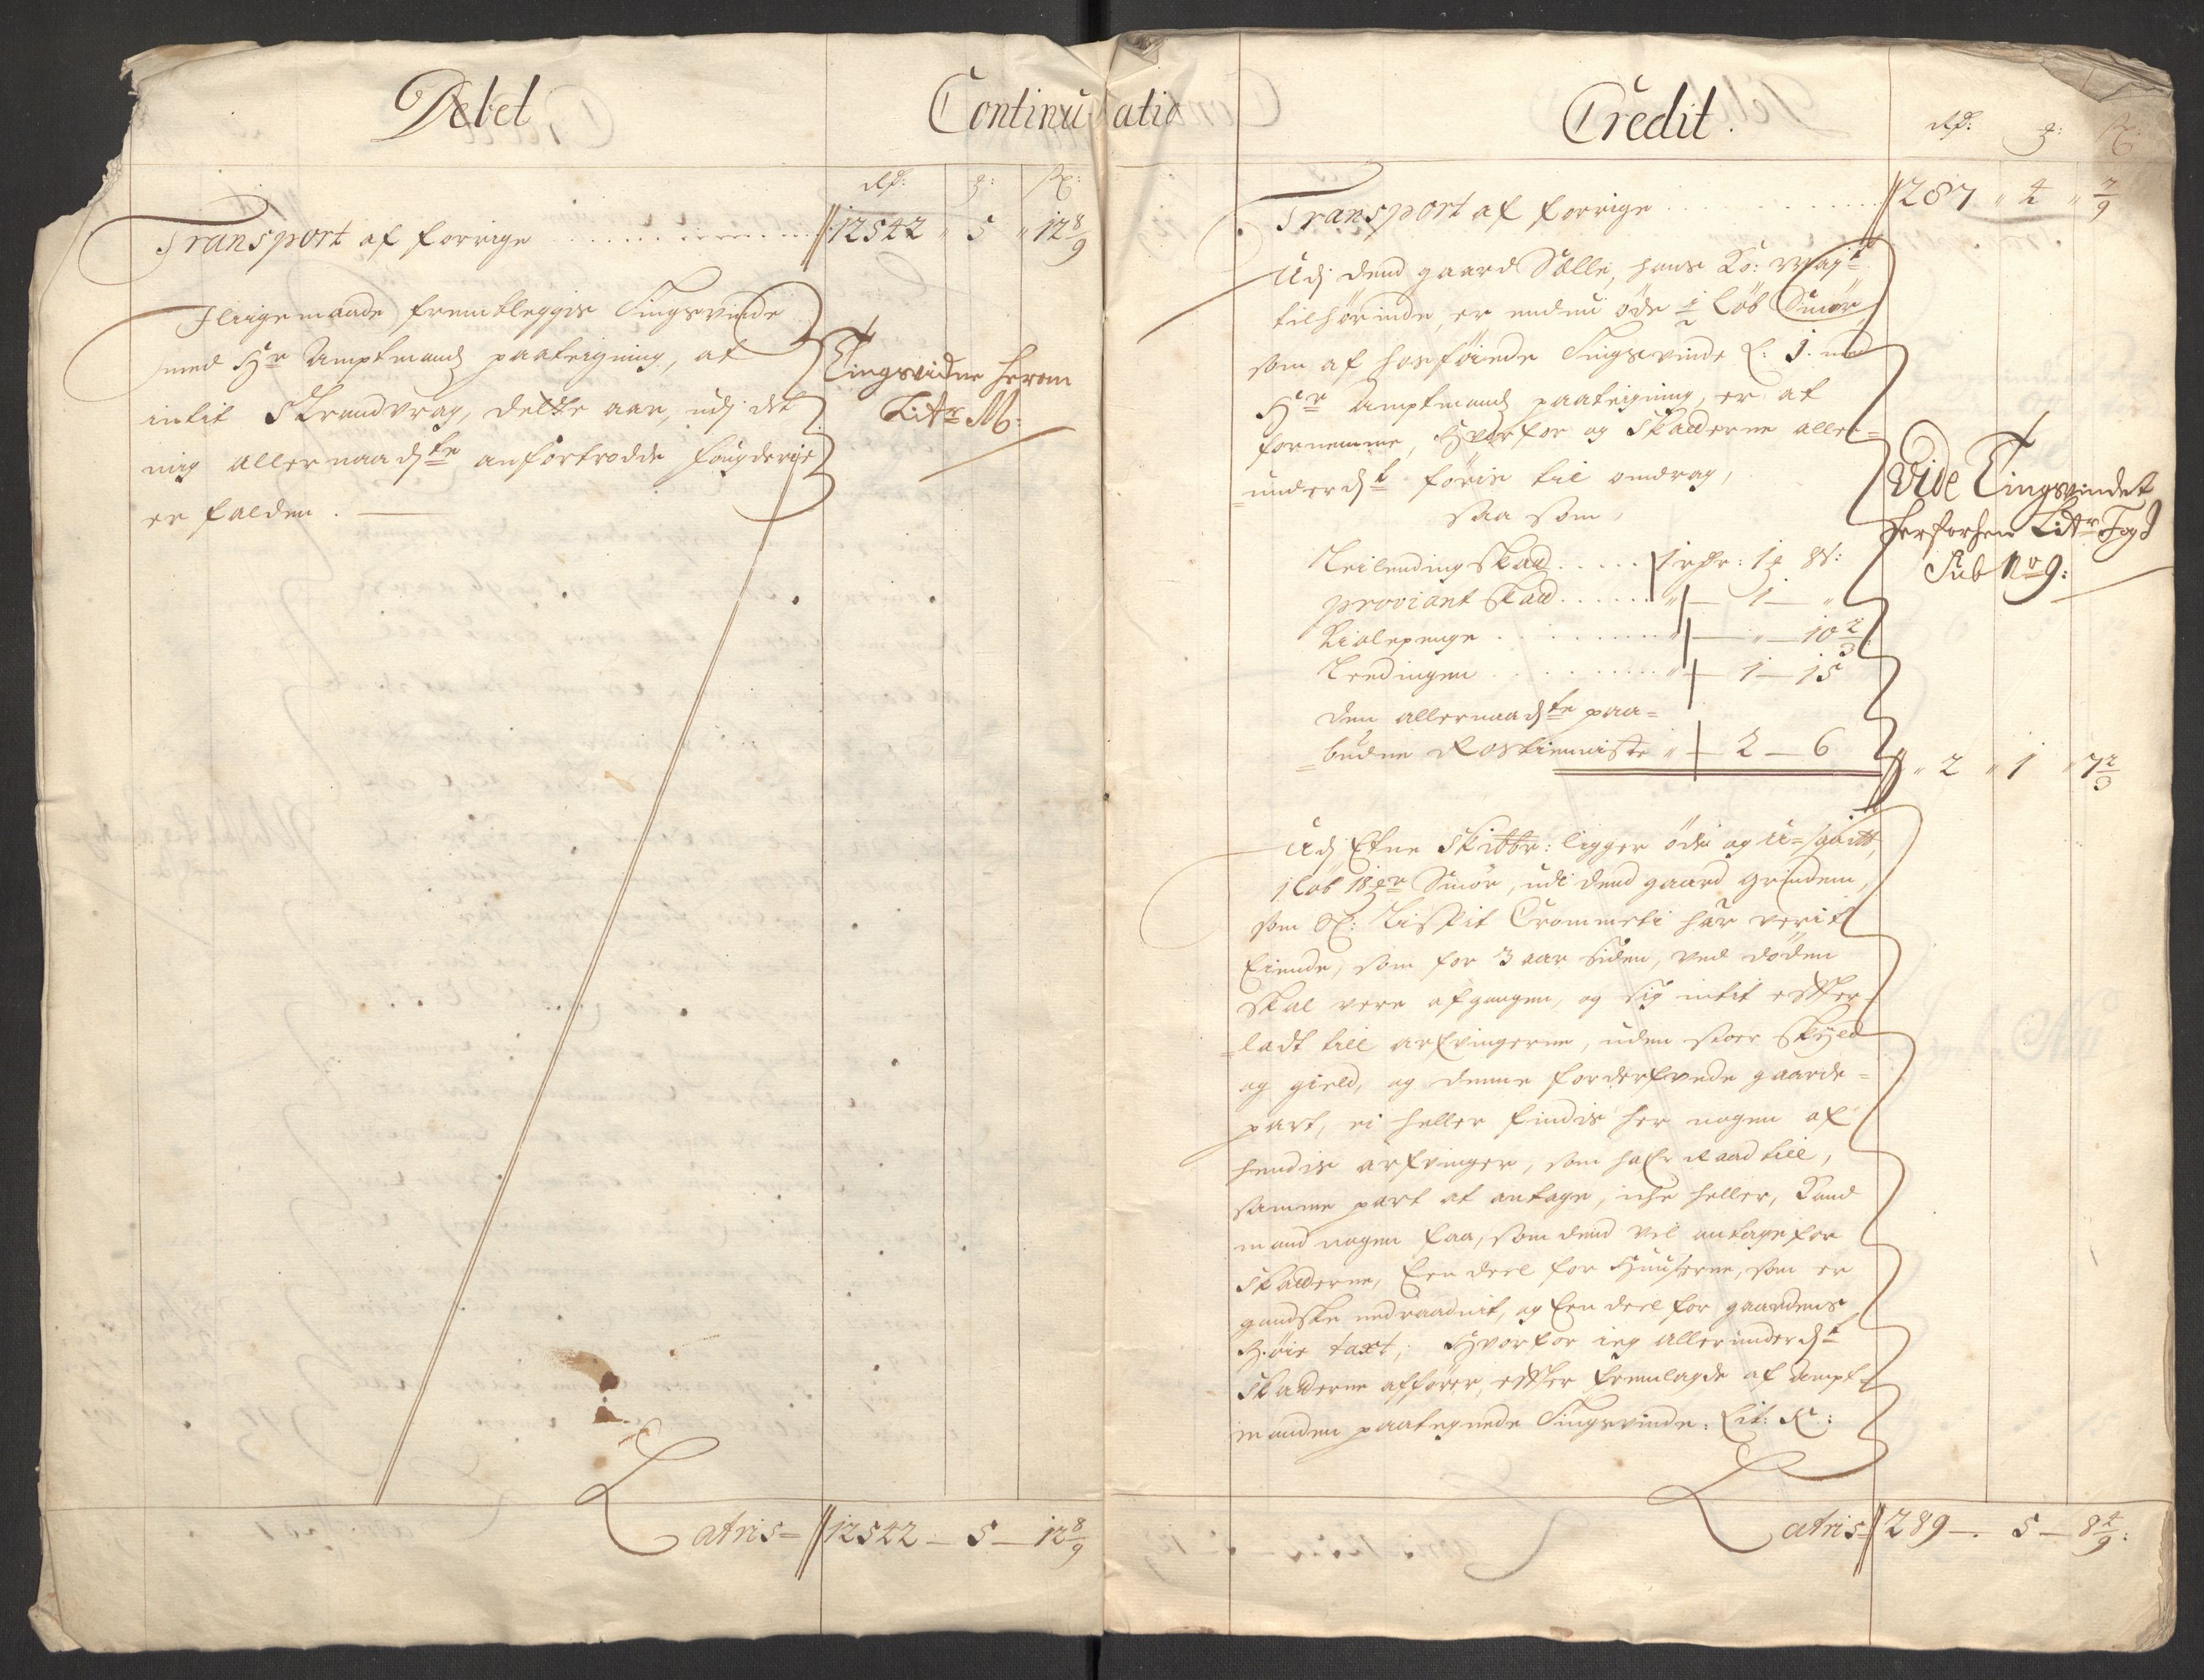 Debet
Continuatio
Rdr: ℔: ß:
Transport af forrige 12542 " 5 " 12 8/9
Iliigemaade fremblegges Tingsvinde
med Hr Amptmands paateigning, at
intit Strandvrag, dette aar, udj det
mig allernaadste anfortrodde fougderie
er falden.
Tingsvidne herom
Litr M:
Latris 12542 – 5 – 12 8/9
Credit.
Transport af forrige 287 " 4 " 7/9
Udj dend gaard Sølle, hans Ko: Mayt
tilhørende, er endnu øde 1/2 Løb Smør
som af hosføiede Tingsvinde L: J. med
Hr Amptmands paateigning, er at
fornemme, Hvorfor og Skatterne aller=
=underdt føris til omdrag,
saa som,
Leilending Skatt 1 rdr: 1 8 ß:
proviant Skatt " – 1 – "
Kiolepenge " – " – 10 2/3
Leedingen " – 1 – 15
den allernaadste paa=
=budne Rostienniste " – 2 – 6
" 2 " 1 " 7 2/3
Vide Tingsvindet
herforhen Litr
Sub No 9:
Udj Etne Skibbr: ligger øde og U=saaitt,
1 Løb 18 mr Smør, udi dend gaard Grindem,
som Sl: Lisbit Trommeti har verit
Eiende, som for 3 aar siden, ved døden
skal vere afgangen, og sig intit efter=
=ladt till arfvingerne, uden stoer skyld
og gield, og denne forderfvede gaarde=
part, ei heller findis her nogen af
hendis arfvinger, som hafr Raad till,
samme part at antage, iche heller, kand
mand nogen faa, som dend vil antage for
Skatterne, Een deel for Huuserne, som er
gandske nedraadnit, og Een deel for gaardens
Høie taxt, Hvorfor ieg allerunderdt
Skatterne affører, efter fremlagde af Ampt=
manden paategnede Tingsvinde. Lit: K:
Latris 289 – 5 – 8 4/9: